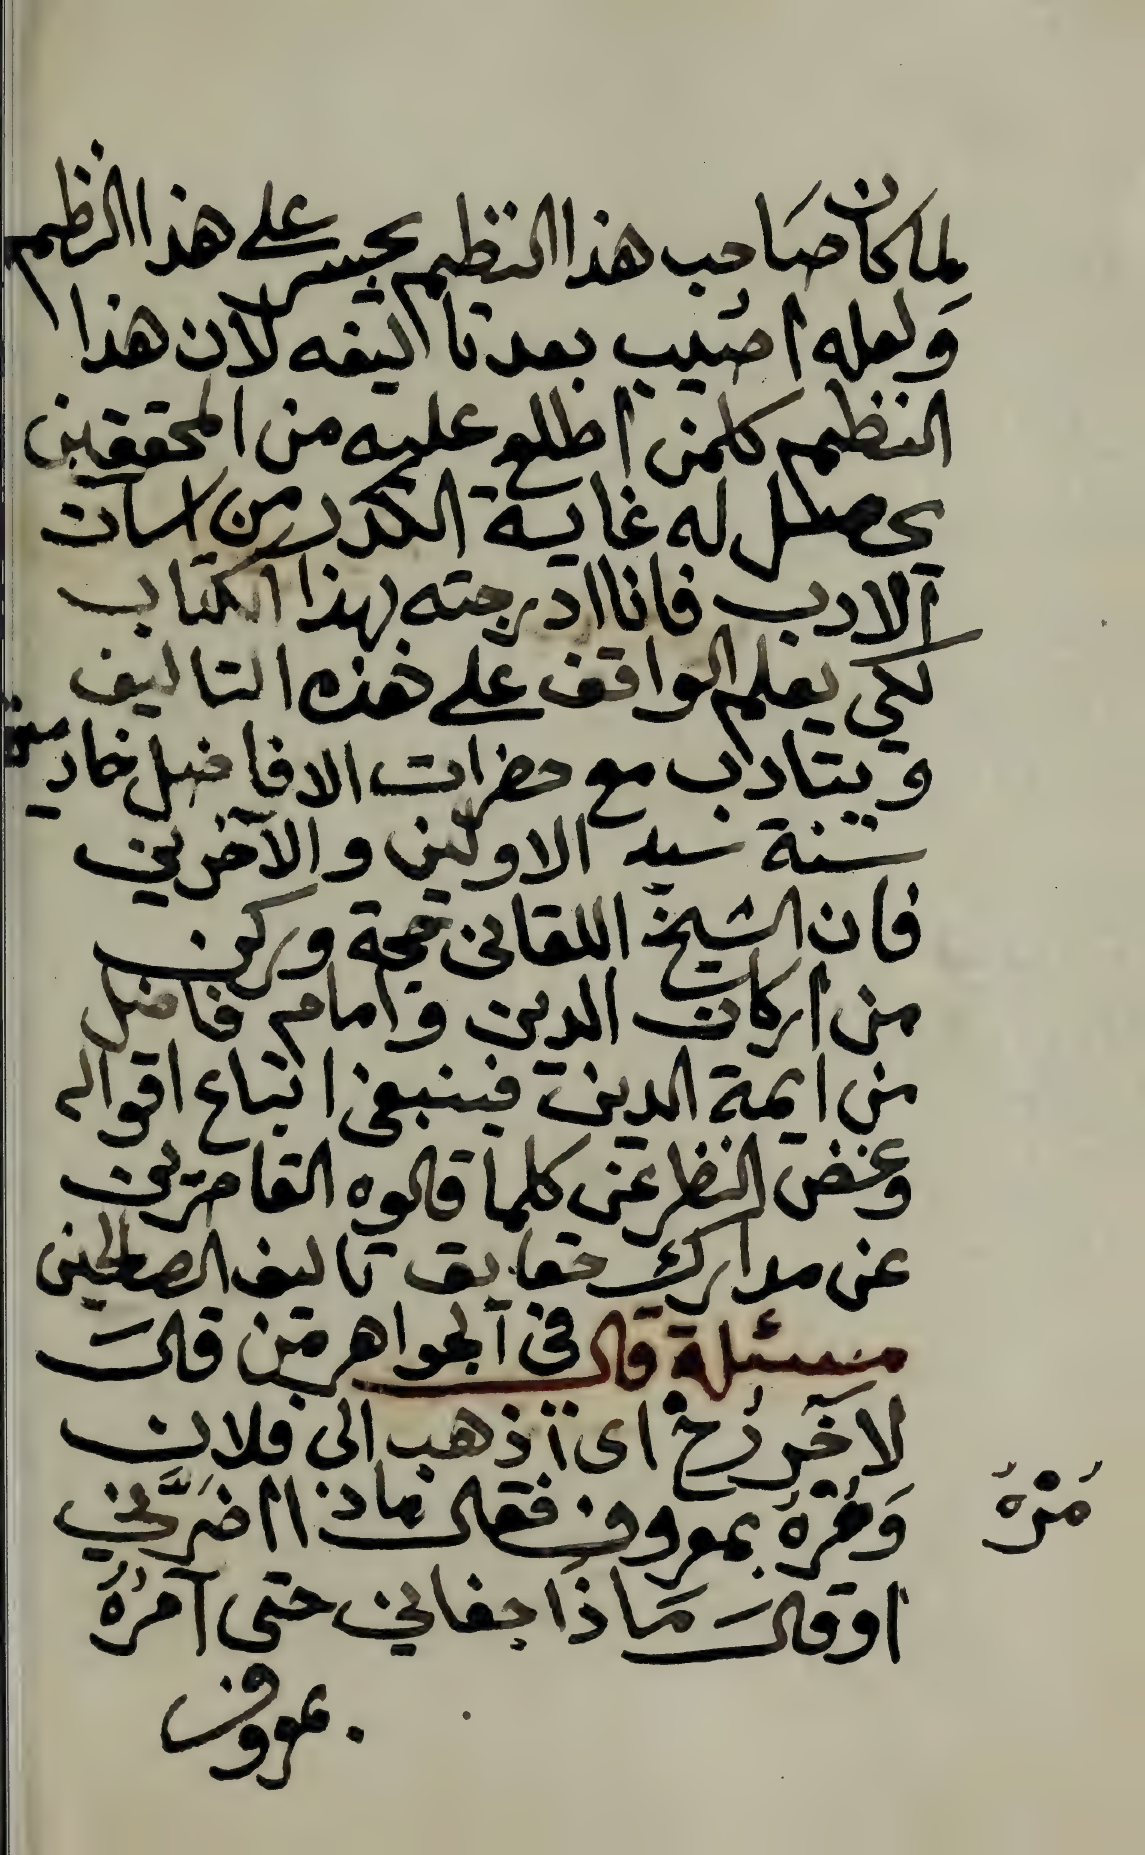 لما كان صاحب هذا النظيم يجسر على هذا النظيم
ولعله اصيب بعد تااليفه لان هذا
النظيم كلمن اطلع عليه من المحققين
يحصل له غاية الكدر من اسآت
الادب فانا ادرجته بهذا الكتاب
لكي يعلم الواقف على هذه التاليف
ويتادب مع حضرات الافاضل خادمين
سنة سيد الاولين والآخرين
فان الشيخ اللقاني حجة وركن
من اركان الدين وامام فاضل
من ايمة الدين فينبغي اتباع اقواله
وغض النظر عن كلما قالوه القاصرين
عن مدارك حقايق تاليف الصالحين
مسئلة قال في الجواهر من قال
لآخر رُحْ اى اذهب الى فلان
وَمُرْهُ بمعروف فقال ماذا اضَرَّني
او قال مَاذَا جفاني حتى آمرُهُ
بمعروف
مُرْهُ